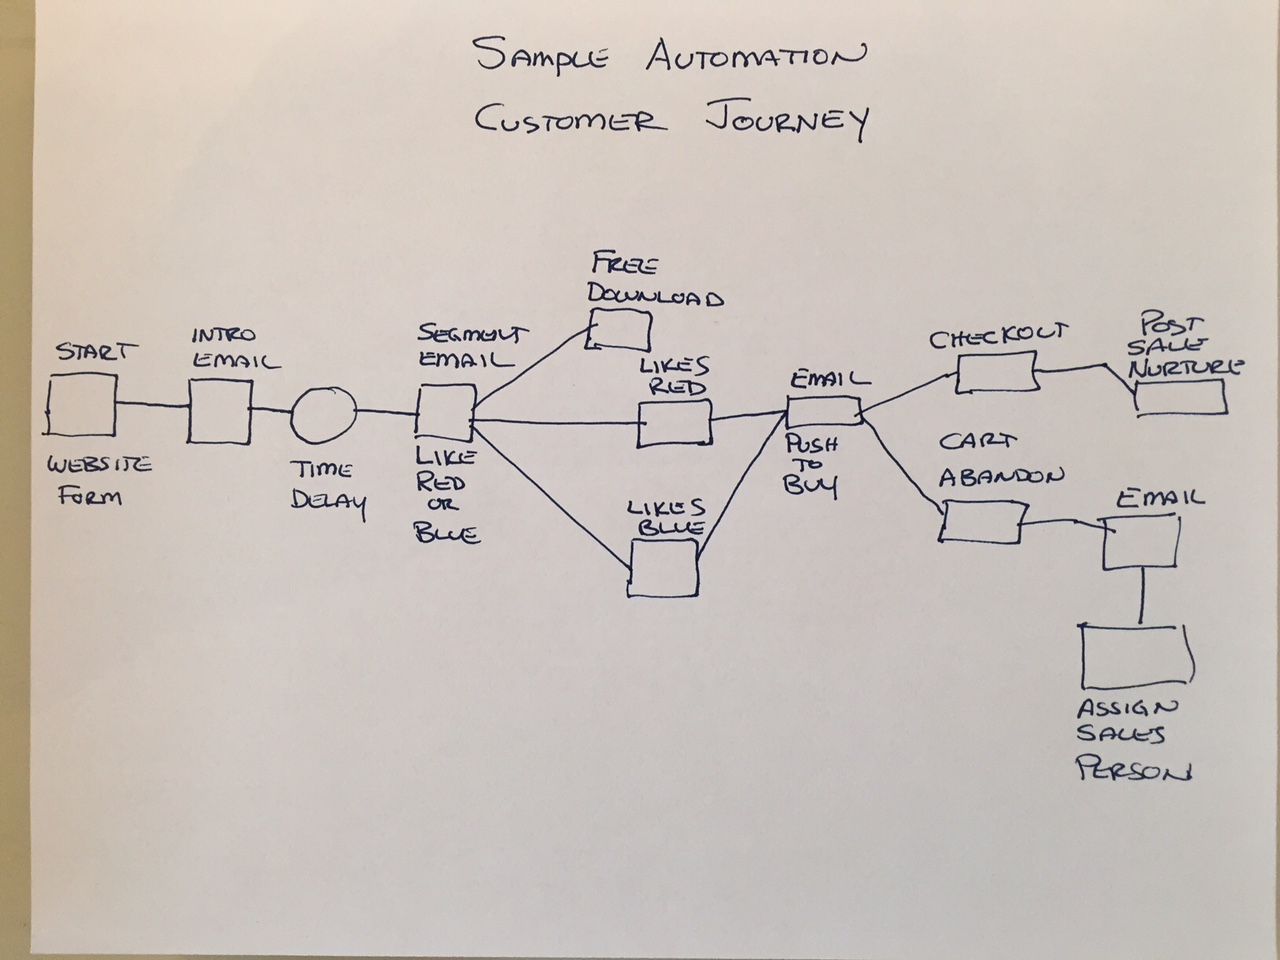 SAMPLE AUTOMATION
CUSTOMER JOURNEY
START
WEBSITE
FORM
INTRO
EMAIL
TIME
DELAY
SEGMENT
EMAIL
LIKE
RED
OR
BLUE
FREE
DOWNLOAD
LIKES
RED
LIKES
BLUE
EMAIL
PUSH
TO
BUY
CHECKOUT
POST
SALE
NURTURE
CART
ABANDON
EMAIL
ASSIGN
SALES
PERSON